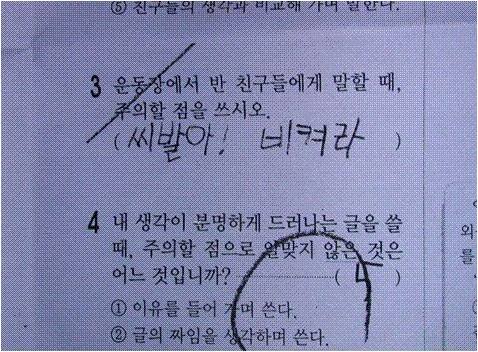 ⑤ 친구들의 생각과 비교해 가며 말한다.
3 운동장에서 반 친구들에게 말할 때,
주의할 점을 쓰시오.
( 씨발아! 비켜라 )
4 내 생각이 분명하게 드러나는 글을 쓸
때, 주의할 점으로 알맞지 않은 것은
어느 것입니까? ( 5 )
① 이유를 들어 가며 쓴다.
② 글의 짜임을 생각하며 쓴다.
외
를
①